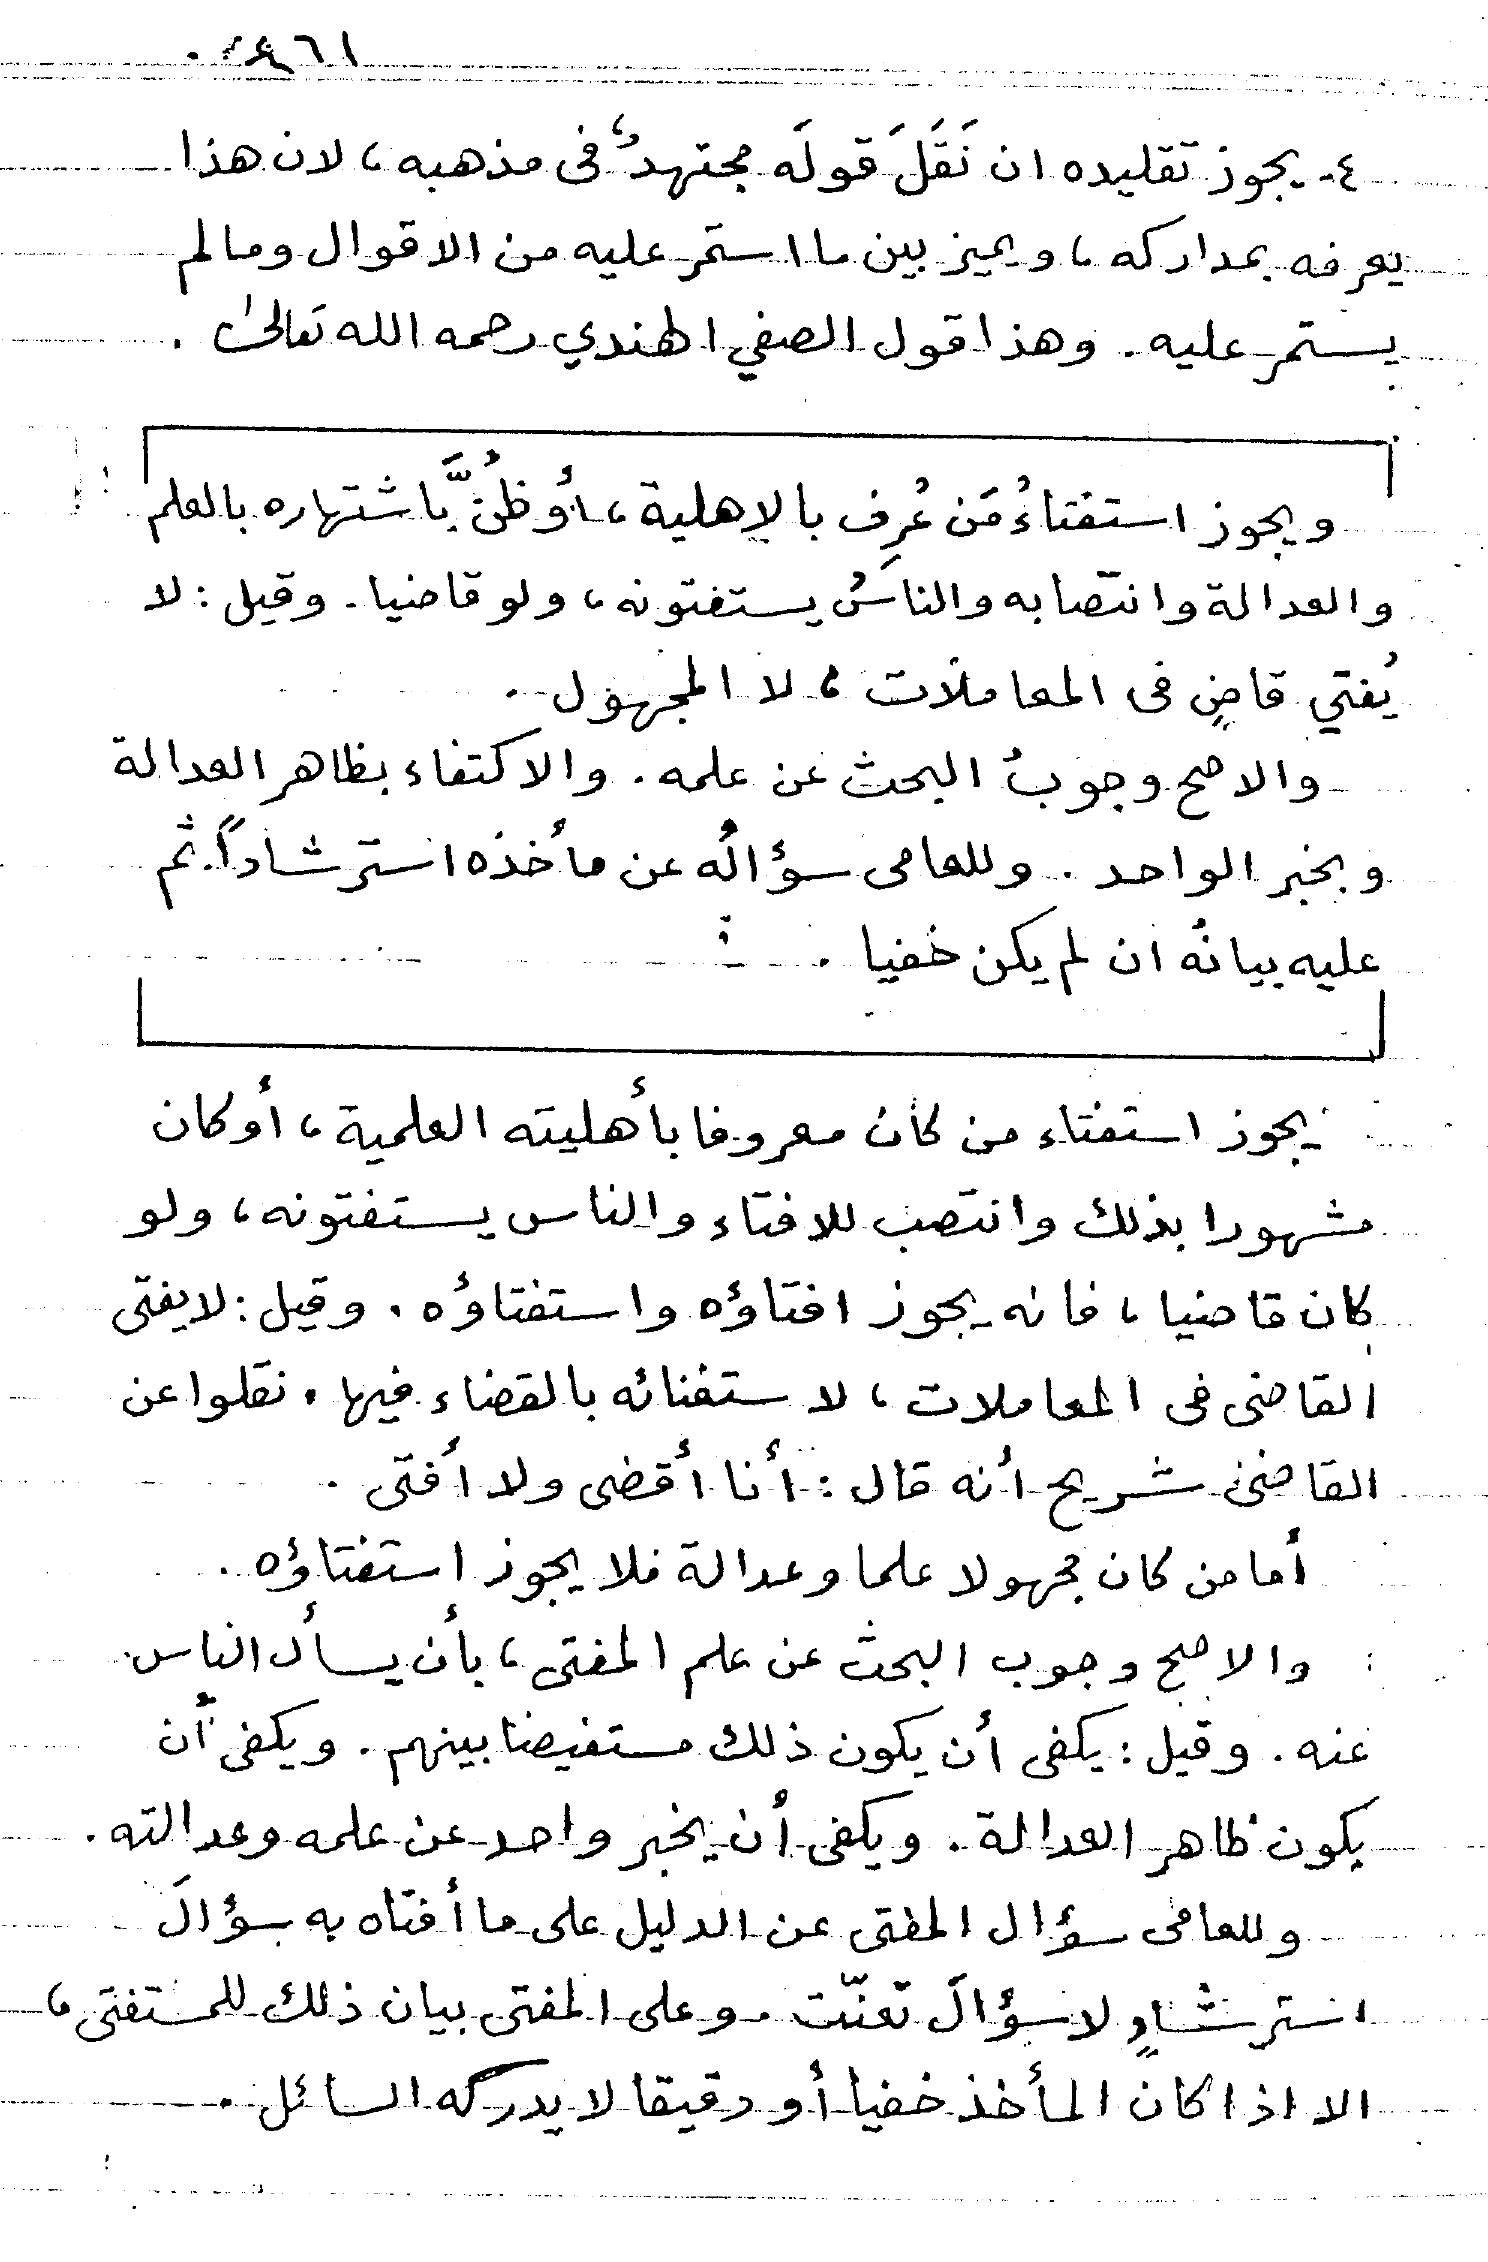 ٤٦١
٤- يجوز تقليده ان نَقَلَ قولَه مجتهدٌ فى مذهبه، لان هذا
يعرفه بمداركه، ويميز بين ما استمر عليه من الاقوال وما لم
يستمر عليه. وهذا قول الصفي الهندي رحمه الله تعالىٰ.
ويجوز استفتاءُ مَن عُرِف بالاهلية، أوظُنَّ باشتهاره بالعلم
والعدالة وانتصابه والناسُ يستفتونه، ولو قاضيا. وقيل: لا
يُفتي قاضٍ فى المعاملات، لا المجهول.
والاصح وجوبُ البحث عن علمه. والاكتفاء بظاهر العدالة
وبخبر الواحد. وللعامى سؤالُه عن مأخذه استرشاداً. ثم
عليه بيانُه ان لم يكن خفيا.
يجوز استفتاء من كان معروفا بأهليته العلمية، أو كان
مشهورا بذلك وانتصب للافتاء والناس يستفتونه، ولو
كان قاضيا، فانه يجوز افتاؤه واستفتاؤه. وقيل: لا يفتى
القاضى فى المعاملات، لاستغنائه بالقضاء فيها. نقلوا عن
القاضى شريح أنه قال: أنا أقضى ولا أفتى.
أما من كان مجهولا علما وعدالة فلا يجوز استفتاؤه.
والاصح وجوب البحث عن علم المفتى، بأن يسأل الناس
عنه. وقيل: يكفى أن يكون ذلك مستفيضا بينهم. ويكفى أن
يكون ظاهر العدالة. ويكفى أن يخبر واحد عن علمه وعدالته.
وللعامى سؤال المفتى عن الدليل على ما أفتاه به سؤالَ
استرشادٍ لا سؤالَ تعنّت. وعلى المفتى بيان ذلك للمستفتى،
الا اذا كان المأخذ خفيا أو دقيقا لا يدركه السائل.